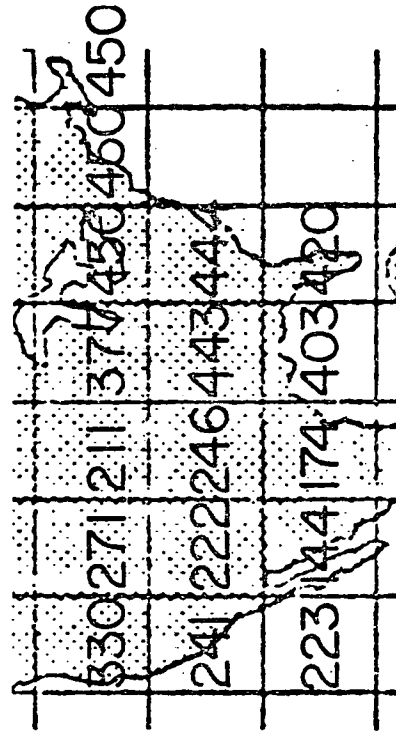 330 271 211 450 450
241 222 246 443 444
223 144 174 403 420